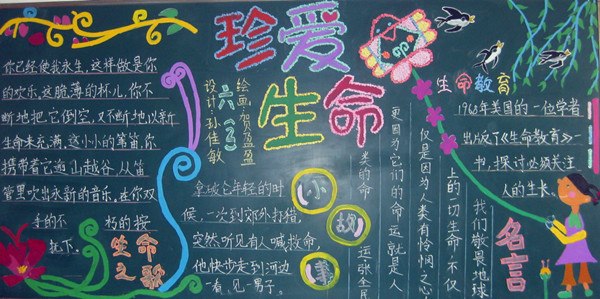 珍爱
生命
六(2)
绘画:贺盈盈
设计:孙佳敏
你已经使我永生,这样做是你
的欢乐。这脆薄的杯儿,你不
断地把它倒空,又不断地以新
生命来充满。这小小的苇笛,你
携带着它逾山越谷,从笛
管里吹出永新的音乐。在你双
手的不朽的按
抚下。
生命之歌
小故事
拿破仑年轻的时
候,一次到郊外打猎,
突然听见有人喊救命,
他快步走到河边
一看,见一男子。
生命教育
1968年美国的一位学者
出版了《生命教育》一
书,探讨必须关注
人的生长。
名言
我们敬畏地球
上的一切生命,不仅
仅是因为人类有怜悯之心
更因为它们的命运就是人
类的命运张全民